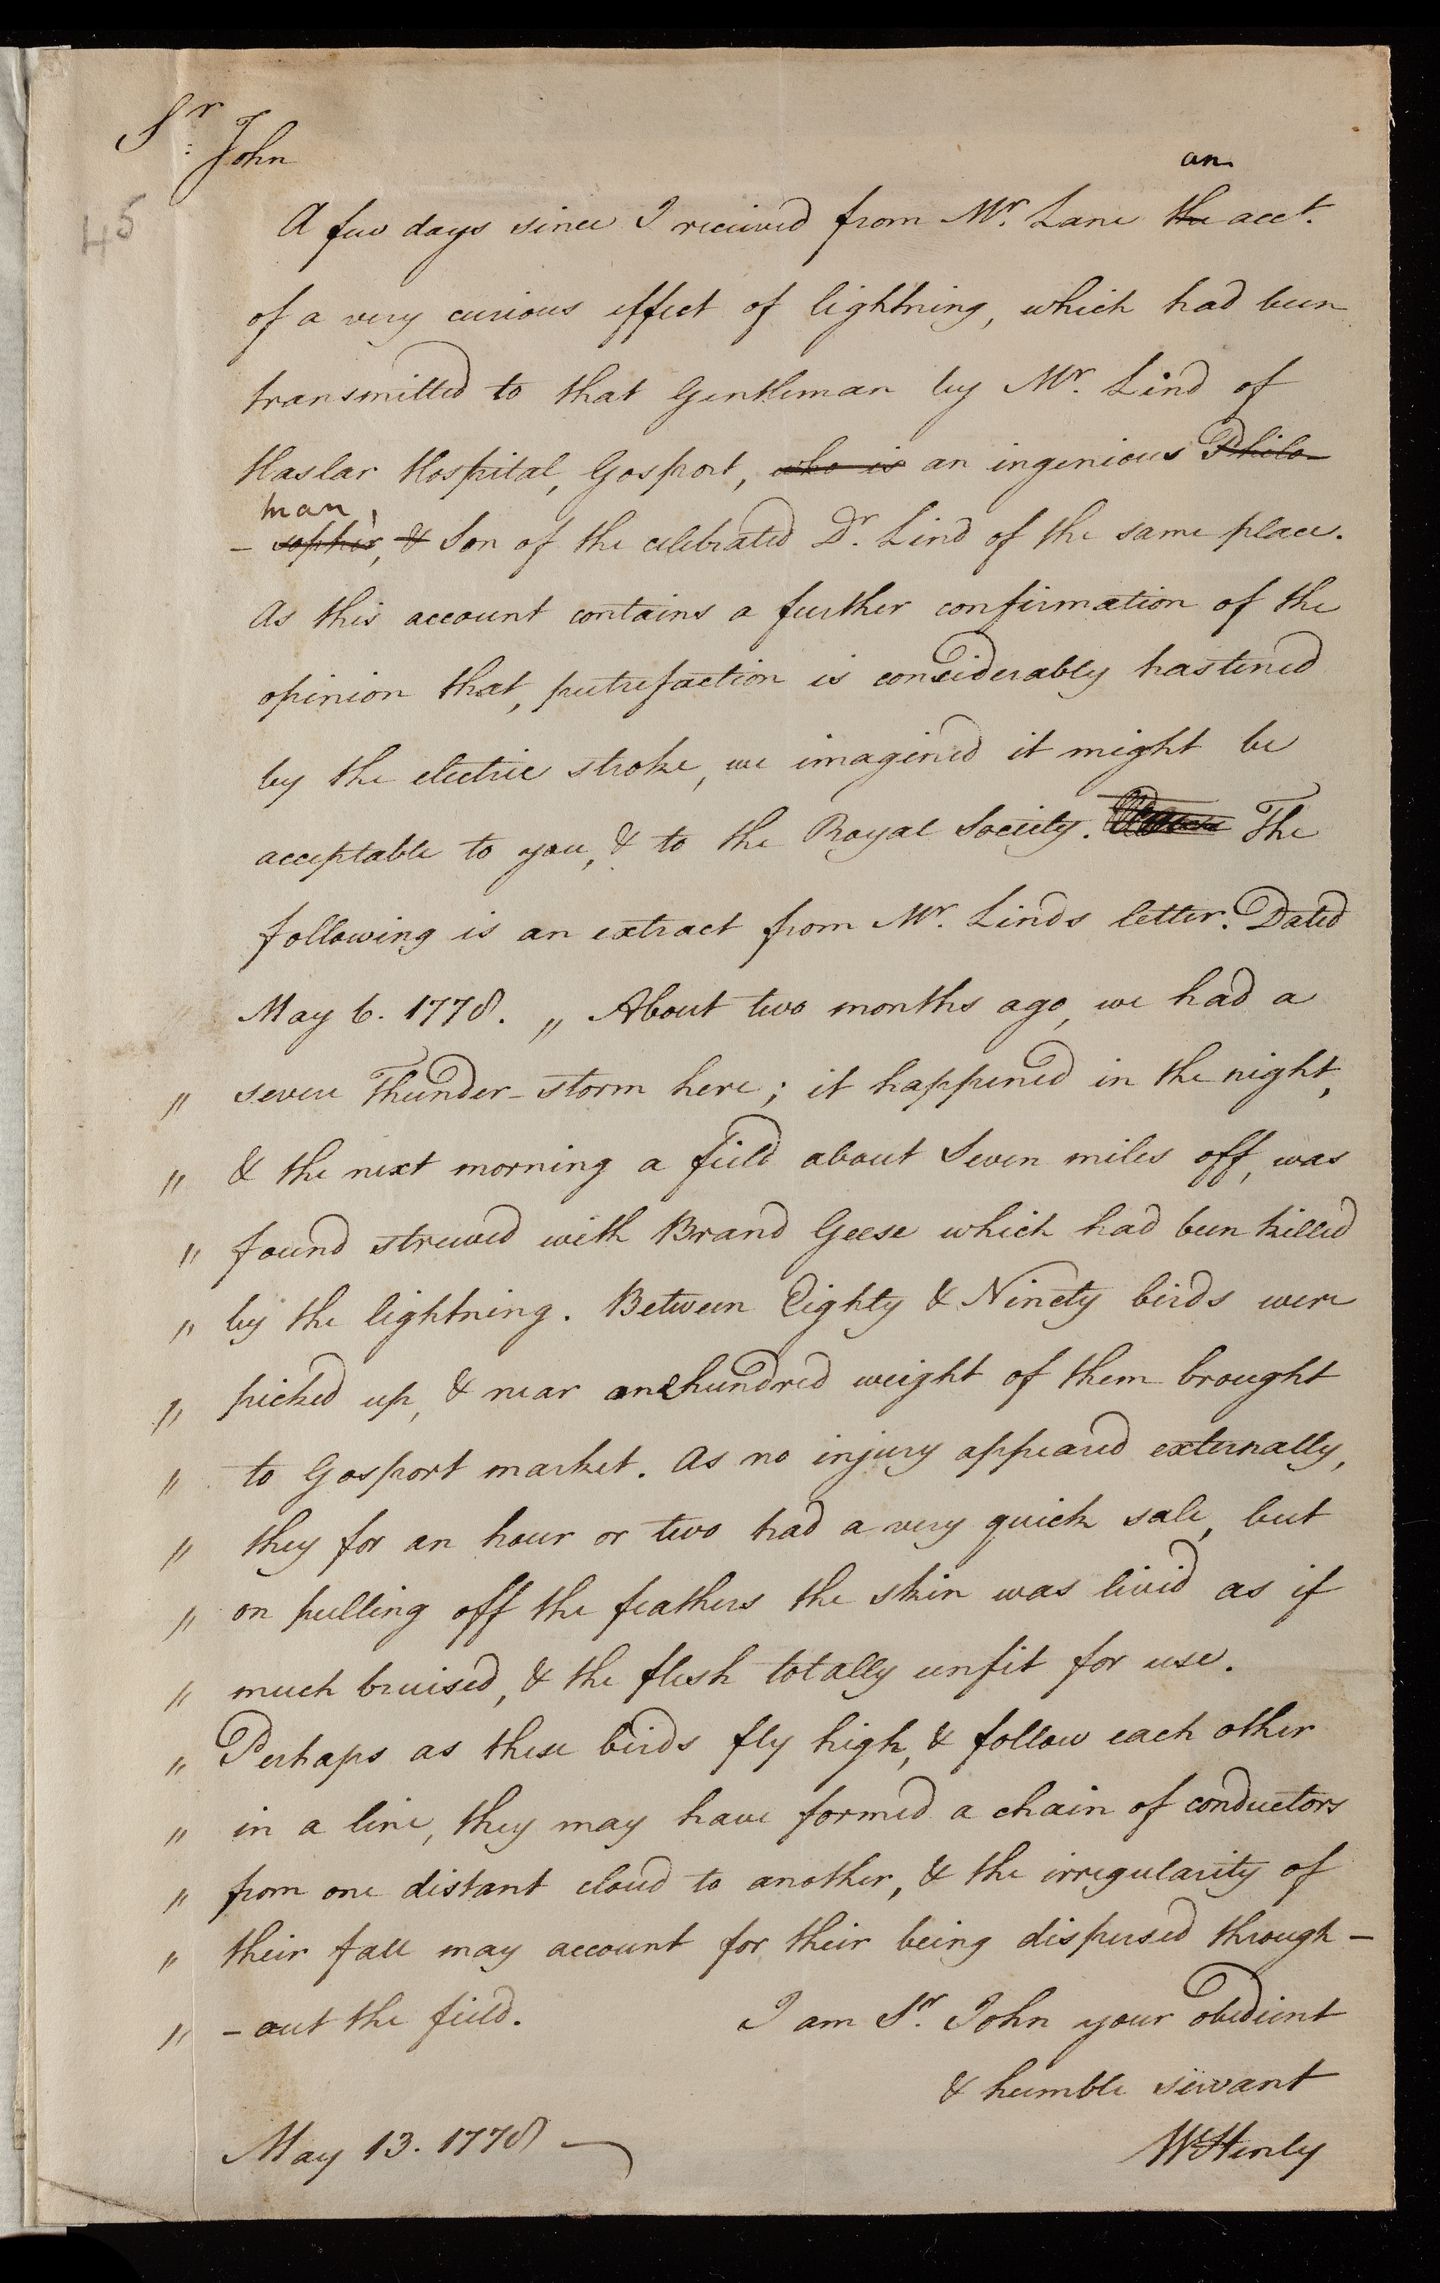 Sr:
John
45
an
A few days since I received from Mr. Lane the acct.
of a very curious effect of lightning, which had been
transmitted to that Gentleman by Mr. Lind of
Haslar Hospital, Gosport, who is an ingenious Philo-
man,
- sopher, & Son of the celebrated Dr. Lind of the same place.
As this account contains a further confirmation of the
opinion that, putrefaction is considerably hastened
by the electric stroke, we imagined it might be
acceptable to you, & to the Royal Society. The
following is an extract from Mr. Linds letter. Dated
May 6. 1778. „ About two months ago, we had a
„ severe Thunder-storm here; it happened in the night,
„ & the next morning a field about Seven miles off, was
„ found strewed with Brand Geese which had been killed
„ by the lightning. Between Eighty & Ninety birds were
„ picked up, & near one hundred weight of them brought
„ to Gosport market. As no injury appeared externally,
„ they for an hour or two had a very quick sale, but
„ on pulling off the feathers the skin was livid as if
„ much bruised, & the flesh totally unfit for use.
„ Perhaps as these birds fly high, & follow each other
„ in a line, they may have formed a chain of conductors
„ from one distant cloud to another, & the irregularity of
„ their fall may account for their being dispersed through-
„ - out the field. I am Sr. John your obedient
& humble servant
May 13. 1778 WHenly